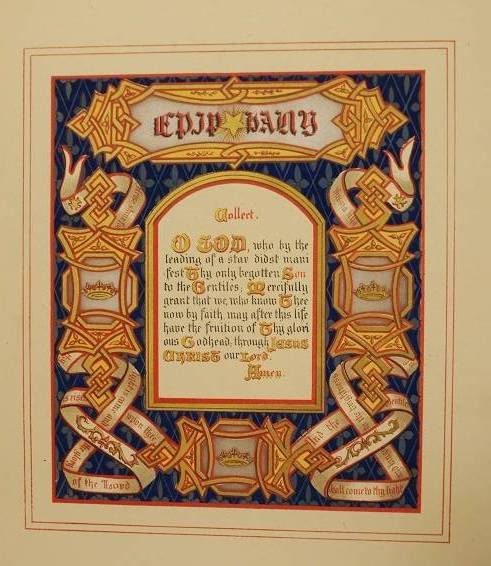 EPIPHANY
Collect.
O GOD, who by the
leading of a star didst mani
fest Thy only begotten Son
to the Gentiles; Mercifully
grant that we, who know Thee
now by faith, may after this life
have the fruition of Thy glori
ous Godhead, through JESUS
CHRIST our Lord.
Amen.
is risen
upon thee
of the Lord
And the
Gentiles
shall come to thy light